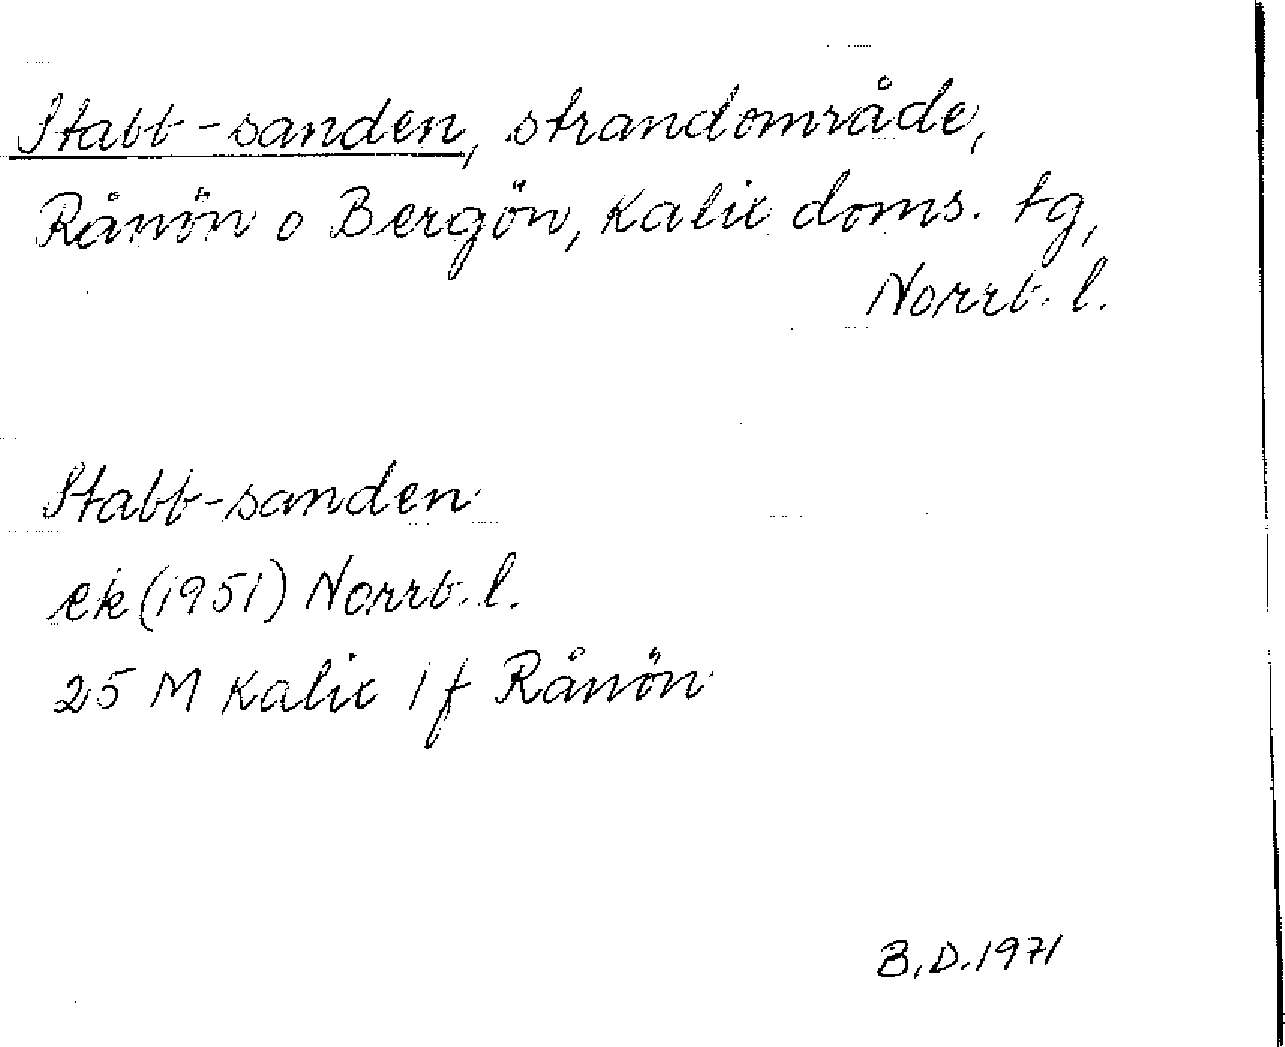 Stabb-sanden, strandområde,
Rånön o Bergön, Kalix doms. tg,
Norrb. l.
Stabb-sanden
ek (1951) Norrb. l.
25 M Kalix 1 f Rånön
B.D. 1971